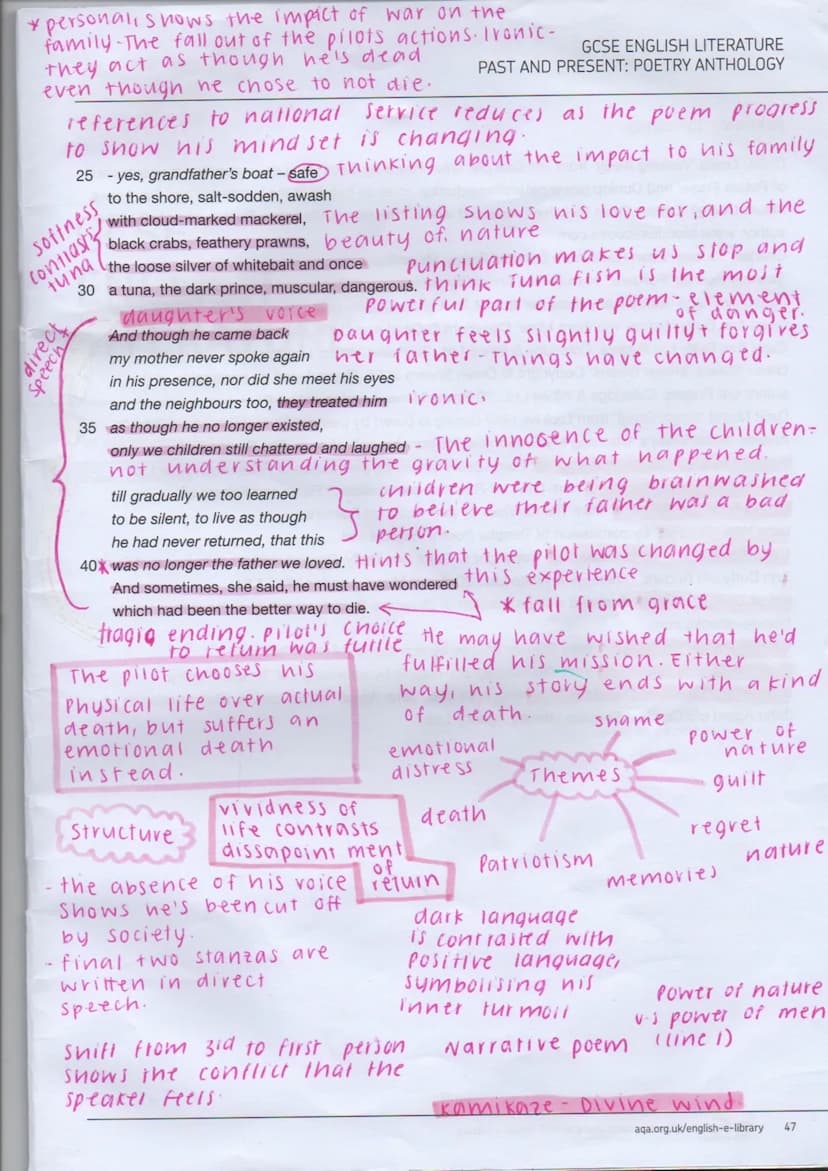 * personal, shows the impact of war on the
family - The fall out of the pilots actions. Ironic -
they act as though he's dead
even though he chose to not die.
GCSE ENGLISH LITERATURE
PAST AND PRESENT: POETRY ANTHOLOGY
references to national service reduces as the poem progress
to show his mind set is changing.
25 - yes, grandfather's boat – safe Thinking about the impact to his family
to the shore, salt-sodden, awash
with cloud-marked mackerel, The listing shows his love for, and the
black crabs, feathery prawns, beauty of, nature
softness
contrasts
tuna
the loose silver of whitebait and once punctuation makes us stop and
30 a tuna, the dark prince, muscular, dangerous. think Tuna fish is the most
powerful part of the poem - element
of danger.
daughter's voice
direct
speech
And though he came back Daughter feels slightly guilty + forgives
my mother never spoke again her father - Things have changed.
in his presence, nor did she meet his eyes
and the neighbours too, they treated him ironic.
35 as though he no longer existed,
only we children still chattered and laughed - The innocence of the children -
not understanding the gravity of what happened.
till gradually we too learned children were being brainwashed
to be silent, to live as though to believe their father was a bad
he had never returned, that this person.
40 * was no longer the father we loved. Hints that the pilot was changed by
And sometimes, she said, he must have wondered this experience
which had been the better way to die. * fall from grace
tragic ending. pilot's choice
to return was futile
He may have wished that he'd
fulfilled his mission. Either
way, his story ends with a kind
of death.
The pilot chooses his
physical life over actual
death, but suffers an
emotional death
instead.
Themes
shame
power of
nature
guilt
regret
nature
memories
Patriotism
death
emotional
distress
Structure
vividness of
life contrasts
dissapointment
of
return
- the absence of his voice
shows he's been cut off
by society.
- final two stanzas are
written in direct
speech.
dark language
is contrasted with
positive language,
symbolising his
inner turmoil
Power of nature
v.s power of men
(line 1)
Shift from 3rd to first person
shows the conflict that the
speaker feels.
Narrative poem
Kamikaze - Divine wind
aqa.org.uk/english-e-library 47